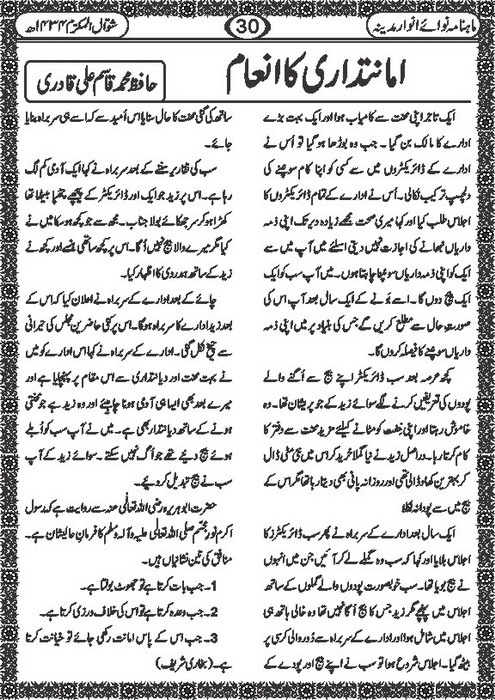 ماہنامہ نوائے انوار مدینہ
30
شوال المکرم ۱۴۳۴ھ
امانتداری کا انعام
حافظ محمد قاسم علی قادری
ایک تاجر اپنی محنت سے کامیاب ہوا اور ایک بہت بڑے
ادارے کا مالک بن گیا ۔ جب وہ بوڑھا ہو گیا تو اُس نے
ادارے کے ڈائریکٹروں میں سے کسی کو اپنا کام سونپنے کی
دلچسپ ترکیب نکالی۔ اُس نے ادارے کے تمام ڈائریکٹروں کا
اجلاس طلب کیا اور کہا میری صحت مجھے زیادہ دیر تک اپنی ذمہ
داریاں نبھانے کی اجازت نہیں دیتی اسلئے میں آپ میں سے
ایک کو اپنی ذمہ داریاں سونپنا چاہتا ہوں۔ میں آپ سب کو ایک
ایک بیج دوں گا۔ اسے بَونے کے ایک سال بعد آپ اس کی
صورتِ حال سے مطلع کریں گے جس کی بنیاد پر میں اپنی ذمہ
داریاں سونپنے کا فیصلہ کروں گا۔
کچھ عرصہ بعد سب ڈائریکٹر اپنے بیج سے اُگنے والے
پودوں کی تعریفیں کرنے لگے سوائے زید کے جو پریشان تھا۔ وہ
خاموش رہتا اور اپنی خفت کو مٹانے کیلئے مزید محنت سے دفتر کا
کام کرتا رہا۔ دراصل زید نے نیا گملا خرید کر اس میں نئی مٹی ڈال
کر بہترین کھاد ڈالی تھی اور روزانہ پانی بھی دیتا رہا تھا مگر اس کے
بیج میں سے پودا نہ نکلا
ایک سال بعد ادارے کے سربراہ نے پھر سب ڈائریکٹرز کا
اجلاس بلایا اور کہا کہ سب وہ گملے لے کر آئیں جن میں انہوں
نے بیج بویا تھا۔ سب خوبصورت پودوں والے گملوں کے ساتھ
اجلاس میں پہنچے مگر زید جس کا بیج اُگا نہیں تھا وہ خالی ہاتھ ہی
اجلاس میں شامل ہوا اور ادارے کے سربراہ سے دور والی کرسی پر
بیٹھ گیا۔ اجلاس شروع ہوا تو سب نے اپنے بیج اور پودے کے
ساتھ کی گئی محنت کا حال سنایا اس اُمید سے کہ اسے ہی سربراہ بنایا
جائے۔
سب کی تقاریر سننے کے بعد سربراہ نے کہا ایک آدمی کم لگ
رہا ہے۔ اس پر زید جو ایک اور ڈائریکٹر کے پیچھے چھپا بیٹھا تھا
کھڑا ہو کر سر جھکائے بولا جناب۔ مجھ سے جو کچھ ہو سکا میں نے
کیا مگر میرے والا بیج نہیں اُگا۔ اس پر کچھ ساتھی ہنسے اور کچھ نے
زید کے ساتھ ہمدردی کا اظہار کیا۔
چائے کے بعد ادارے کے سربراہ نے اعلان کیا کہ اس کے
بعد زید ادارے کا سربراہ ہوگا۔ اس پر کئی حاضرین مجلس کی حیرانی
سے چیخ نکل گئی۔ ادارے کے سربراہ نے کہا اس ادارے کو میں
نے بہت محنت اور دیانتداری سے اس مقام پر پہنچایا ہے اور
میرے بعد بھی ایسا ہی آدمی ہونا چاہئے اور وہ زید ہے جو محنتی
ہونے کے ساتھ دیانتدار بھی ہے۔ میں نے آپ سب کو اُبلے
ہوئے بیج دیئے تھے جو اُگ نہیں سکتے۔ سوائے زید کے آپ
سب نے بیج تبدیل کر دیئے۔
حضرت ابوہریرہ رضی اللہ تعالیٰ عنہ سے روایت ہے کہ رسول
اکرم نور مجسم صلی اللہ تعالیٰ علیہ وآلہ وسلم کا فرمان عالیشان ہے۔
منافق کی تین نشانیاں ہیں۔
1۔ جب بات کرتا ہے تو جھوٹ بولتا ہے۔
2۔ جب وعدہ کرتا ہے تو اس کی خلاف ورزی کرتا ہے۔
3۔ جب اس کے پاس امانت رکھی جائے تو خیانت کرتا
ہے۔ (بخاری شریف)